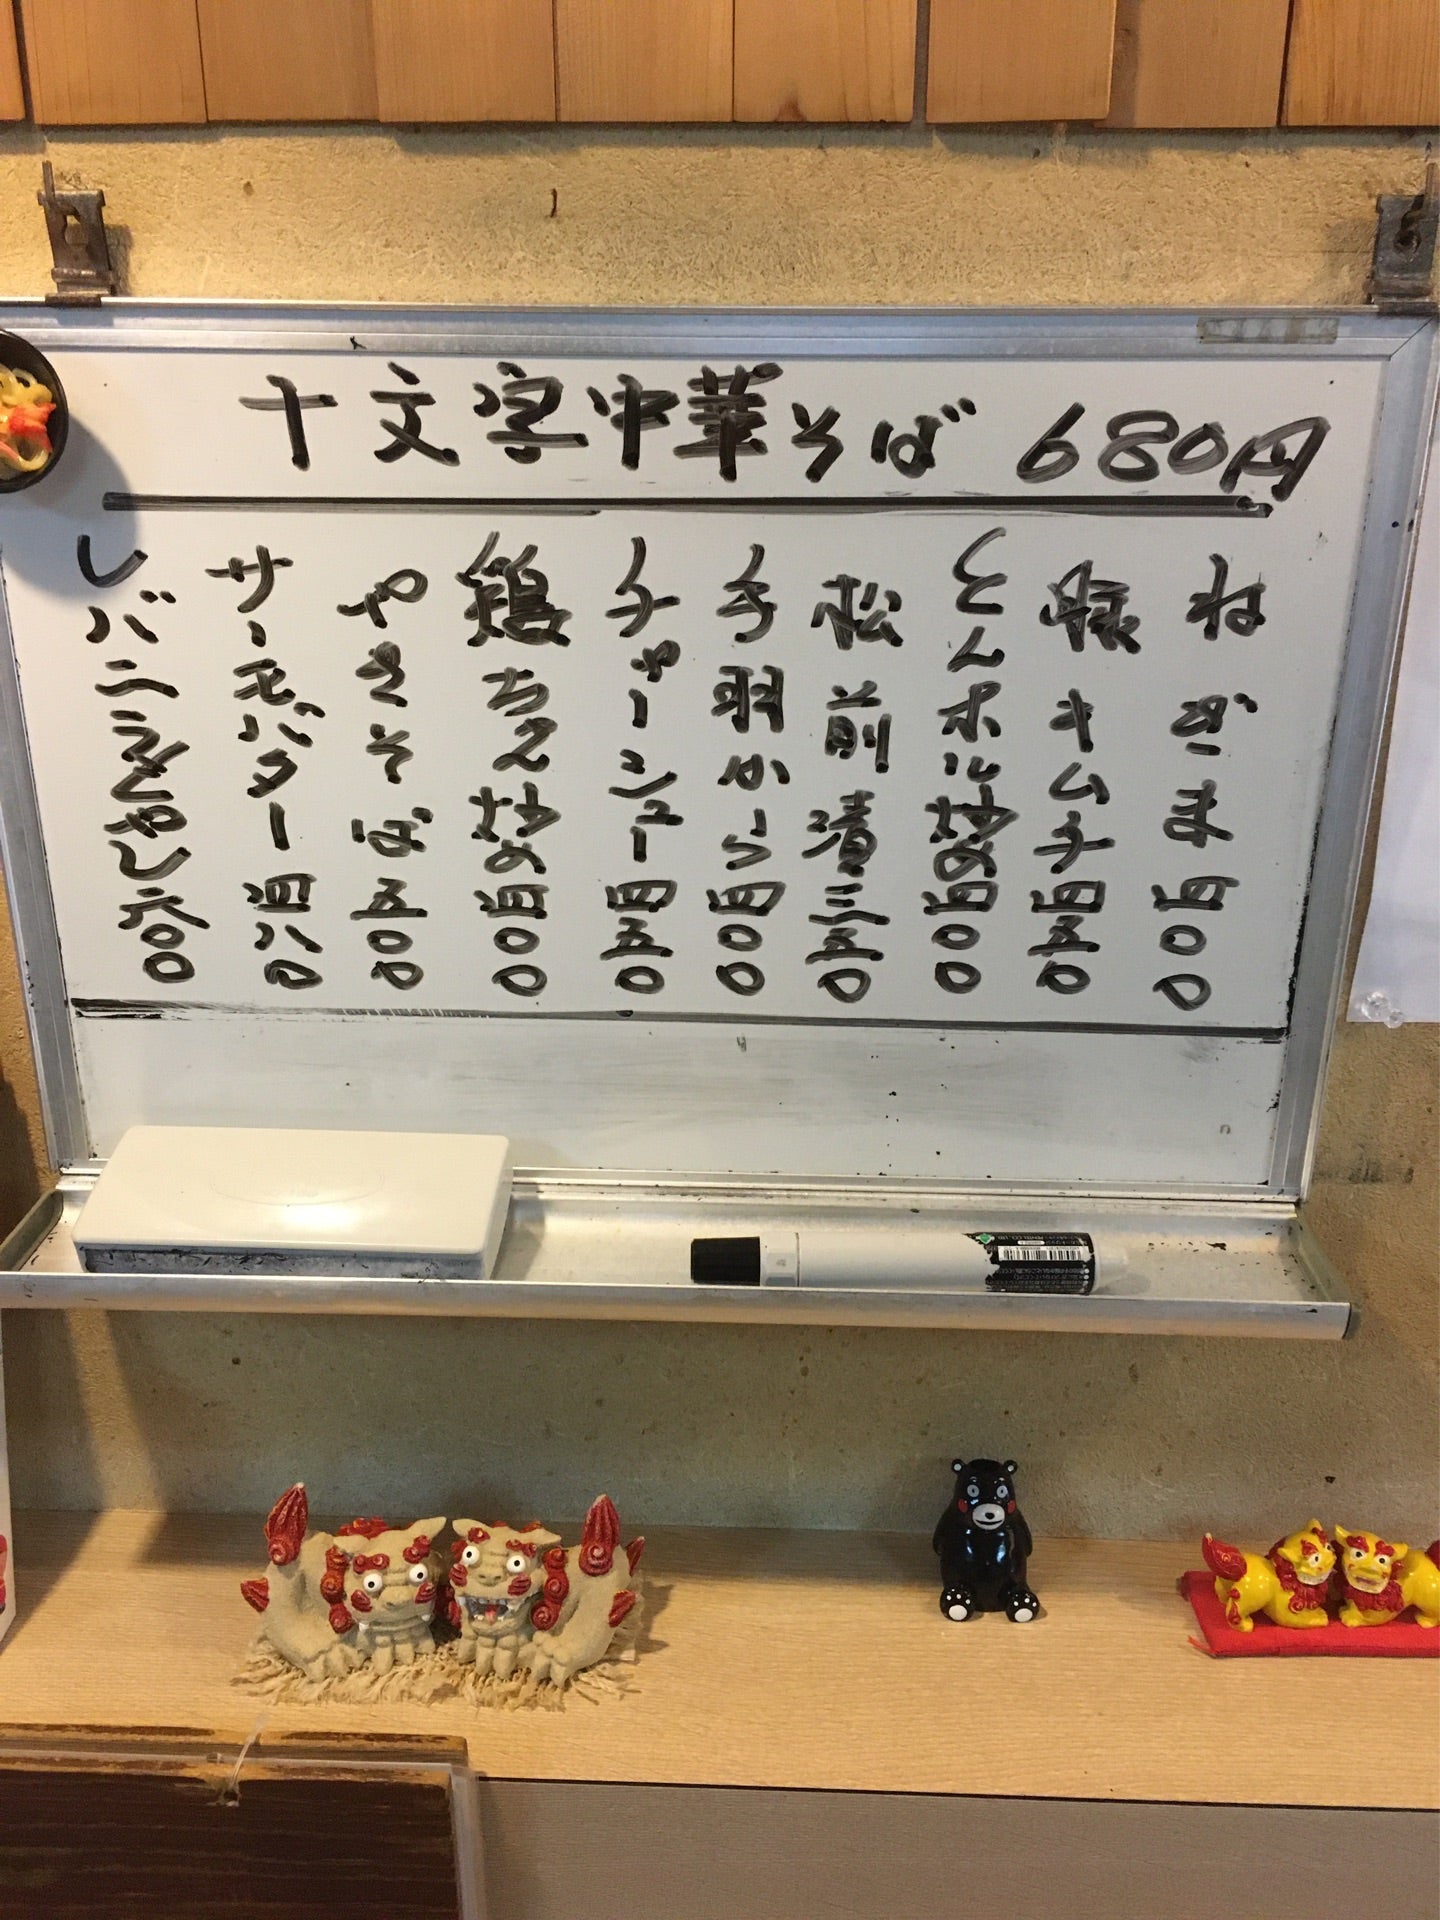 十文字中華そば 680円
ねぎま 四00
豚キムチ 四五0
とんホル炒め 四00
松前漬 三五0
手羽から 四00
チャーシュー 四五0
鶏ちゃん炒め 四00
やきそば 五00
サーモンバター 四八0
レバニラもやし 六00